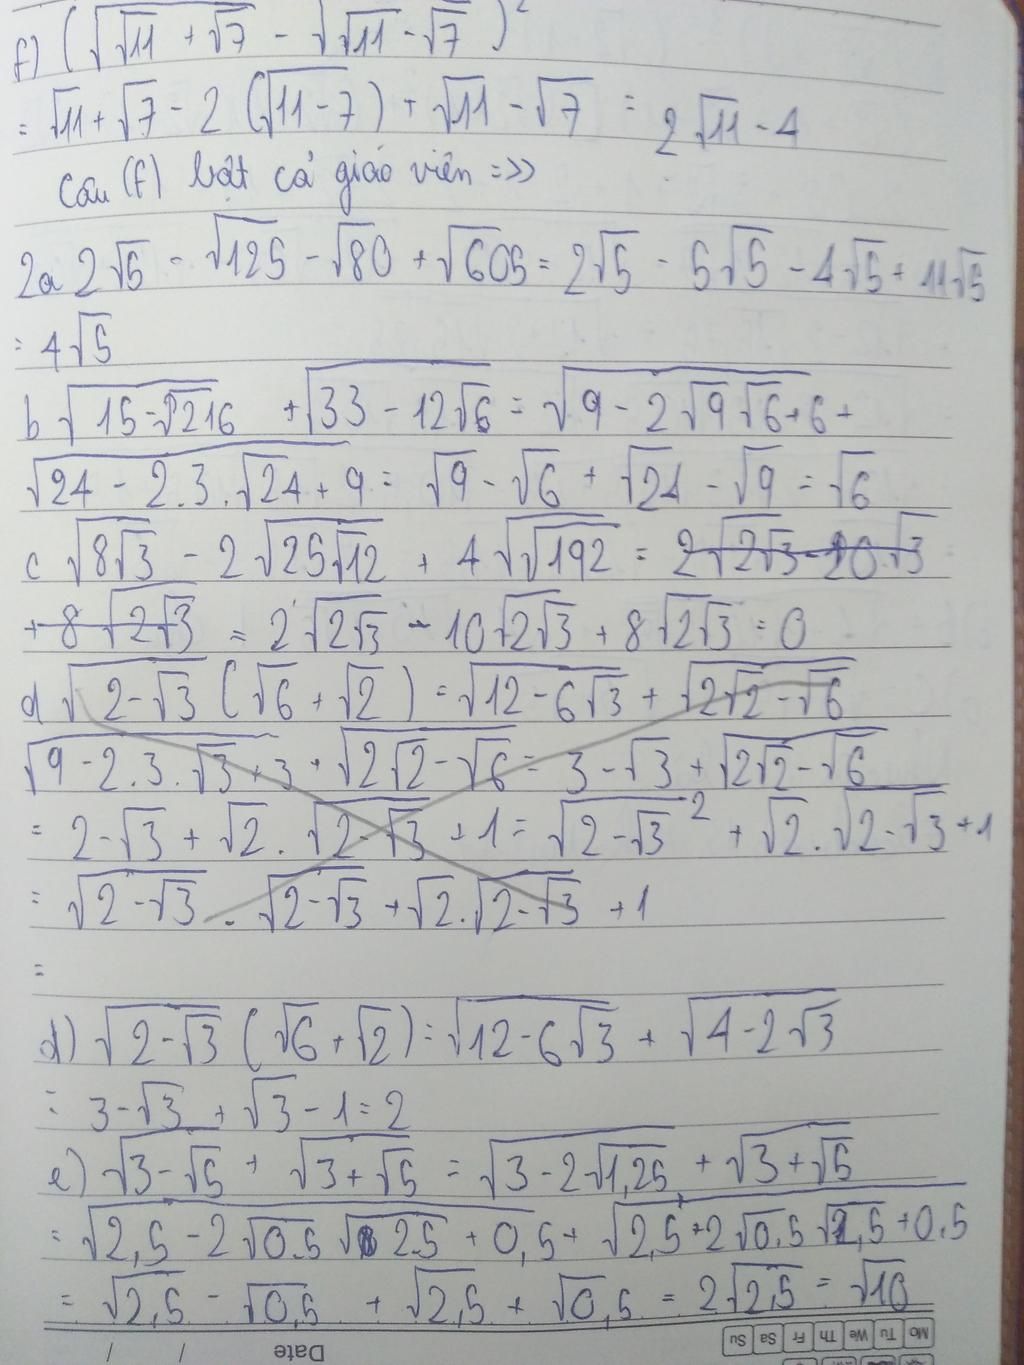 f) (√(√11 + √7) - √(√11 - √7))²
= √11 + √7 - 2 (√(11 - 7)) + √11 - √7 = 2√11 - 4
Câu (f) bật cả giáo viên =>>
2a 2√5 - √125 - √80 + √605 = 2√5 - 5√5 - 4√5 + 11√5
= 4√5
b √(15 - √216) + √(33 - 12√6) = √(9 - 2√9√6 + 6) +
√(24 - 2.3.√24 + 9) = √9 - √6 + √24 - √9 = √6
c √(8√3) - 2√(25√12) + 4√(√192) = 2√(2√3) - 20.√3
+ 8√(2√3) = 2√(2√3) - 10√(2√3) + 8√(2√3) = 0
d √(2 - √3) (√6 + √2) = √(12 - 6√3) + √(2√2 - √6)
√(9 - 2.3.√3 + 3) + √(2√2 - √6) = 3 - √3 + √(2√2 - √6)
= 2 - √3 + √2.√(2 - √3) + 1 = √(2 - √3)² + √2.√(2 - √3) + 1
= √(2 - √3) . √(2 - √3) + √2.√(2 - √3) + 1
=
d) √(2 - √3) (√6 + √2) = √(12 - 6√3) + √(4 - 2√3)
= 3 - √3 + √3 - 1 = 2
e) √(3 - √5) + √(3 + √5) = √(3 - 2√1,25) + √(3 + √5)
= √(2,5 - 2√0.5 √2.5 + 0,5) + √(2,5 + 2√0.5 √2,5 + 0.5)
= √2,5 - √0,5 + √2,5 + √0,5 = 2√2,5 = √10
Mo Tu We Th Fr Sa Su
Date / /